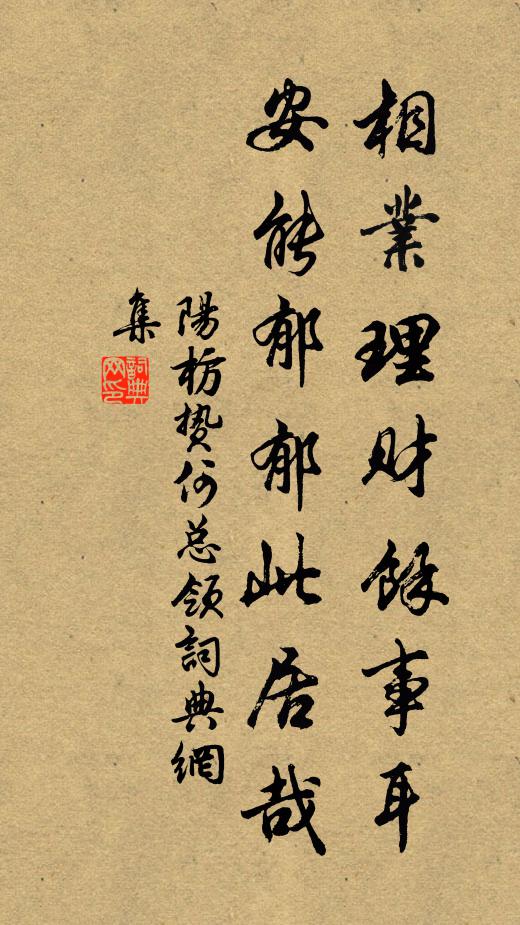 相業理財餘事耳
安能郁郁此居哉
陽枋贄何总領詞典網
集
詞典
网印